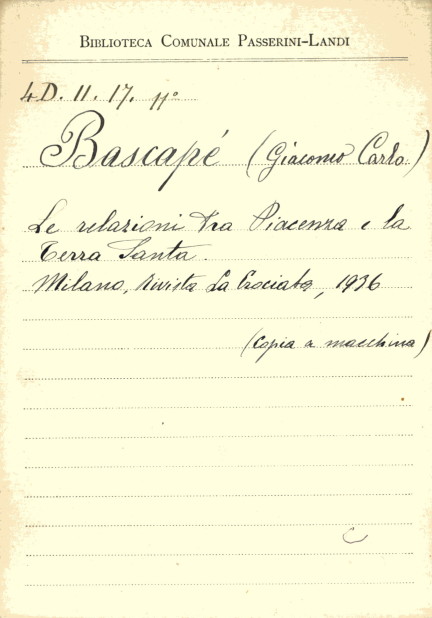 BIBLIOTECA COMUNALE PASSERINI-LANDI
4D. 11. 17. 11°
Bascapé (Giacomo Carlo)
Le relazioni tra Piacenza e la
Terra Santa.
Milano, rivista La Crociata, 1936
(Copia a macchina)
C